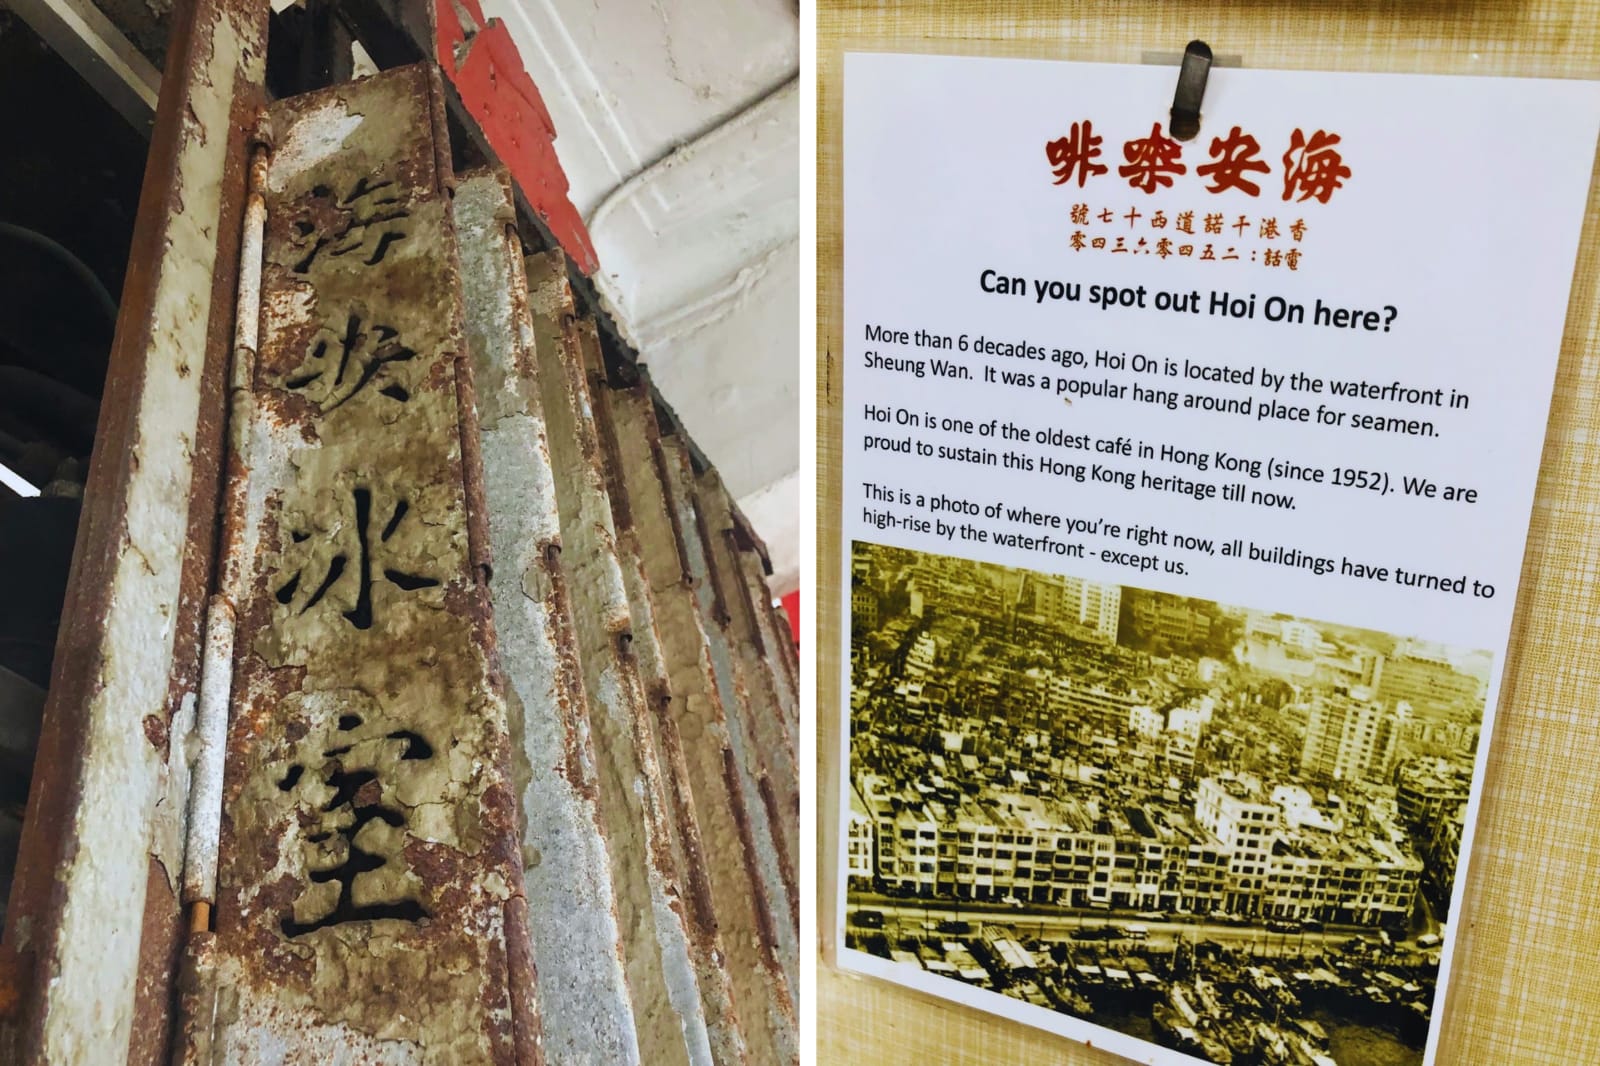 海
冰
室
海安㗎啡
香港干諾道西十七號
電話：二五四零六三四零
Can you spot out Hoi On here?
More than 6 decades ago, Hoi On is located by the waterfront in
Sheung Wan. It was a popular hang around place for seamen.
Hoi On is one of the oldest café in Hong Kong (since 1952). We are
proud to sustain this Hong Kong heritage till now.
This is a photo of where you're right now, all buildings have turned to
high-rise by the waterfront - except us.